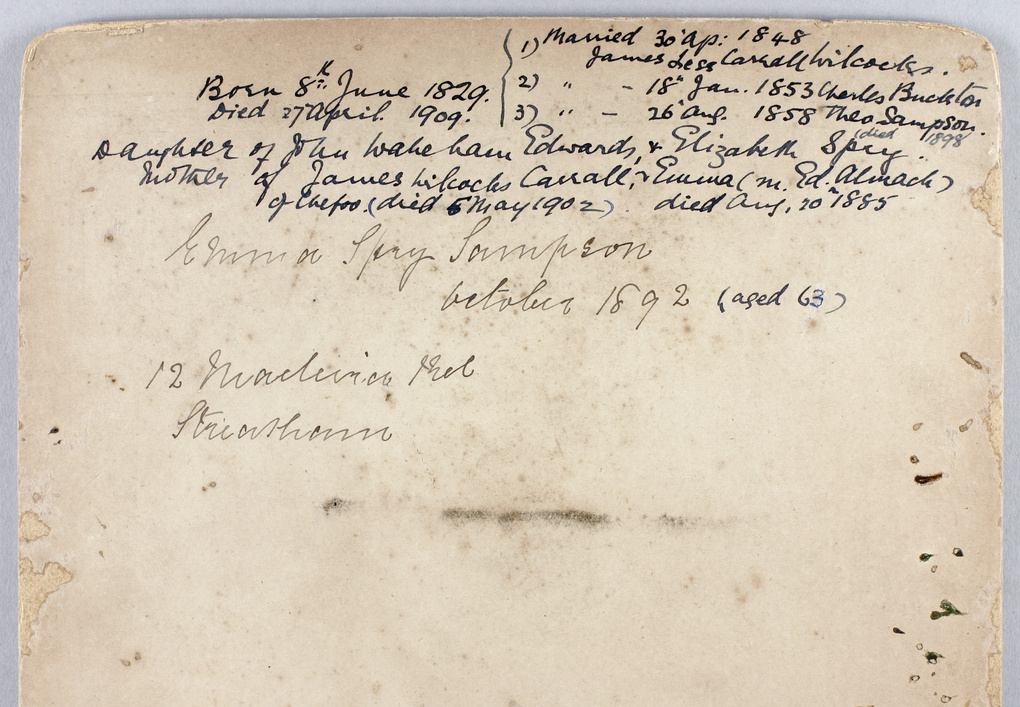 1) Married 30 Ap: 1848
James Less Carrall Wilcocks.
Born 8th June 1829.
2) " - 18th Jan. 1853 Charles Buckton
Died 27 April. 1909.
3) " - 26 Aug. 1858 Theo Sampson.
(died 1898
Daughter of John Wakeham Edwards, & Elizabeth Spry.
Mother of James Wilcocks Carrall, & Emma (m. Ed. Almack)
of Chefoo. (died 6 May 1902) died Aug, 20th 1885
Emma Spry Sampson
October 1892 (aged 63)
12 Madeira Rd
Streatham